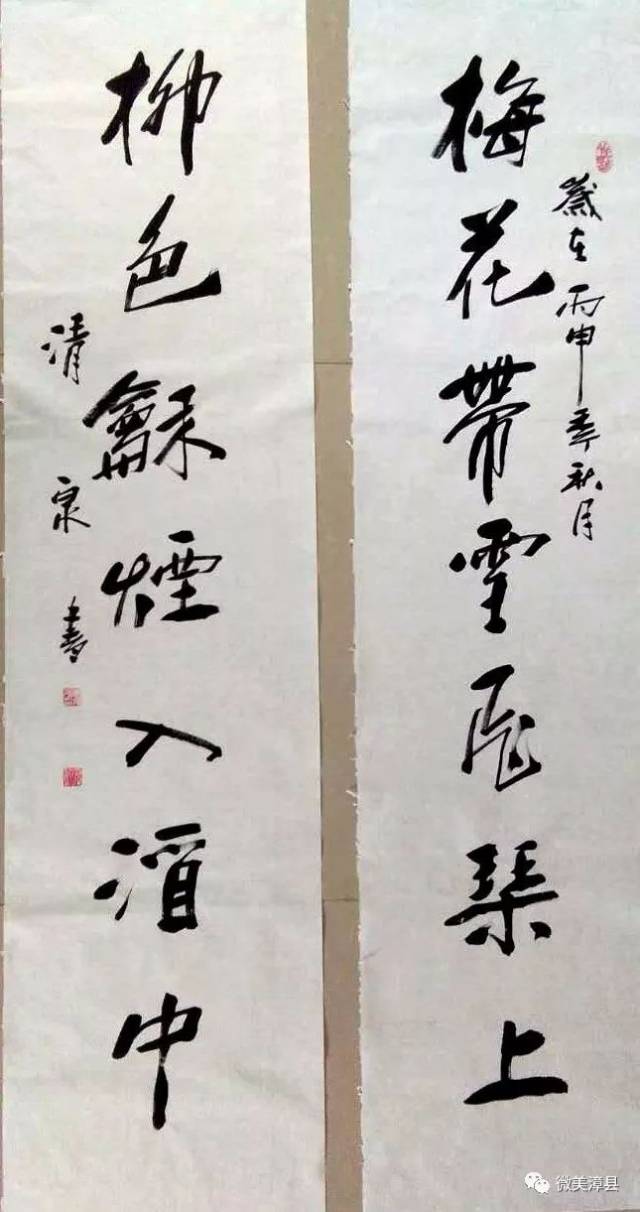 梅花帶雪飛琴上
歲在丙申季秋月
柳色龢煙入酒中
清泉書
微美漳县